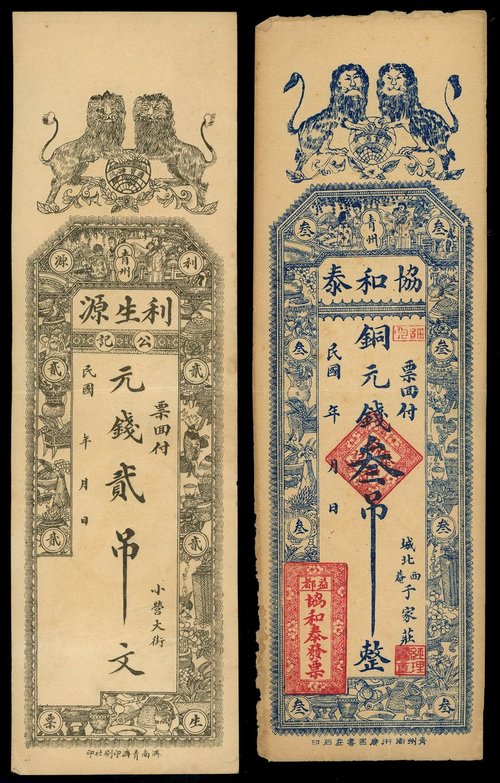 青州
利
源
利生源
公記
貳
貳
票回付
元錢貳吊文
民國 年 月 日
貳
貳
小營大街
生
票
濟南青濟印刷社印
青州
叁
叁
協和泰
叁
叁
票回付
銅元錢叁吊整
民國 年 月 日
叁
叁
城北西
于家莊
益都
協和泰發票
經理
叁
叁